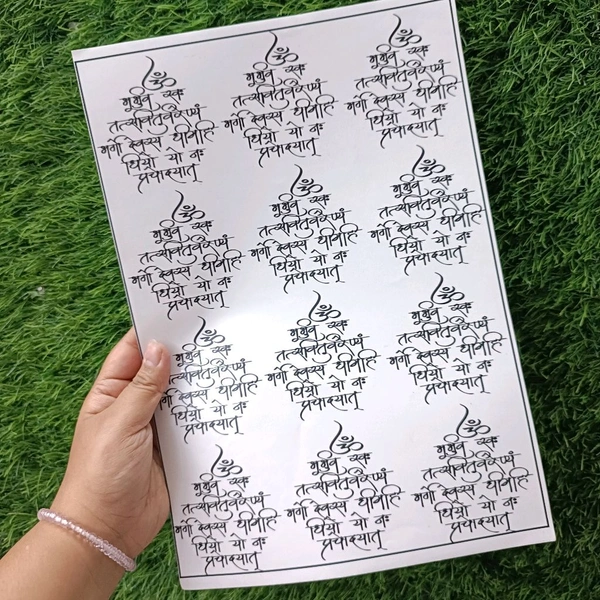 ॐ
भुर्भुव स्वः
तत्सवितुर्वरेण्यं
भर्गो देवस्य धीमहि
धियो यो नः
प्रचोदयात्
ॐ
भुर्भुव स्वः
तत्सवितुर्वरेण्यं
भर्गो देवस्य धीमहि
धियो यो नः
प्रचोदयात्
ॐ
भुर्भुव स्वः
तत्सवितुर्वरेण्यं
भर्गो देवस्य धीमहि
धियो यो नः
प्रचोदयात्
ॐ
भुर्भुव स्वः
तत्सवितुर्वरेण्यं
भर्गो देवस्य धीमहि
धियो यो नः
प्रचोदयात्
ॐ
भुर्भुव स्वः
तत्सवितुर्वरेण्यं
भर्गो देवस्य धीमहि
धियो यो नः
प्रचोदयात्
ॐ
भुर्भुव स्वः
तत्सवितुर्वरेण्यं
भर्गो देवस्य धीमहि
धियो यो नः
प्रचोदयात्
ॐ
भुर्भुव स्वः
तत्सवितुर्वरेण्यं
भर्गो देवस्य धीमहि
धियो यो नः
प्रचोदयात्
ॐ
भुर्भुव स्वः
तत्सवितुर्वरेण्यं
भर्गो देवस्य धीमहि
धियो यो नः
प्रचोदयात्
ॐ
भुर्भुव स्वः
तत्सवितुर्वरेण्यं
भर्गो देवस्य धीमहि
धियो यो नः
प्रचोदयात्
ॐ
भुर्भुव स्वः
तत्सवितुर्वरेण्यं
भर्गो देवस्य धीमहि
धियो यो नः
प्रचोदयात्
ॐ
भुर्भुव स्वः
तत्सवितुर्वरेण्यं
भर्गो देवस्य धीमहि
धियो यो नः
प्रचोदयात्
ॐ
भुर्भुव स्वः
तत्सवितुर्वरेण्यं
भर्गो देवस्य धीमहि
धियो यो नः
प्रचोदयात्